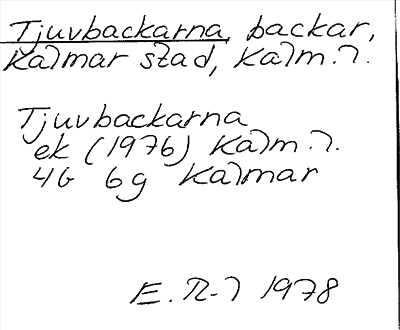 Tjuvbackarna, backar,
Kalmar stad, Kalm.l.
Tjuvbackarna
ek (1976) Kalm.l.
4G 6g Kalmar
E. R-l 1978